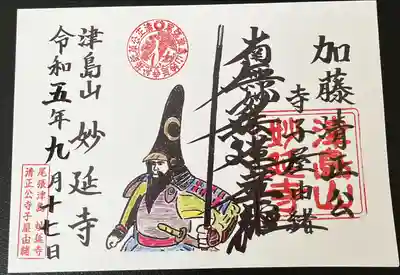 加藤清正公
寺子屋由緒
南無妙法蓮華経
津島山
妙延寺
津島山 妙延寺
令和五年九月十七日
尾張津島 妙延寺
清正公寺子屋由緒